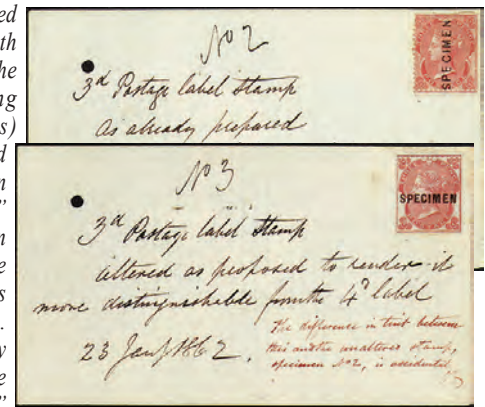 ed
th
he
ng
s)
d
n
”
n
e
s
.
y
e
”
No 2
3d Postage label Stamp
as already prepared
SPECIMEN
No 3
3d Postage label Stamp
altered as proposed to render it
more distinguishable from the 4d label
23 Jany 1862.
The difference in tint between
this and the unaltered stamp,
specimen No 2, is accidental
SPECIMEN